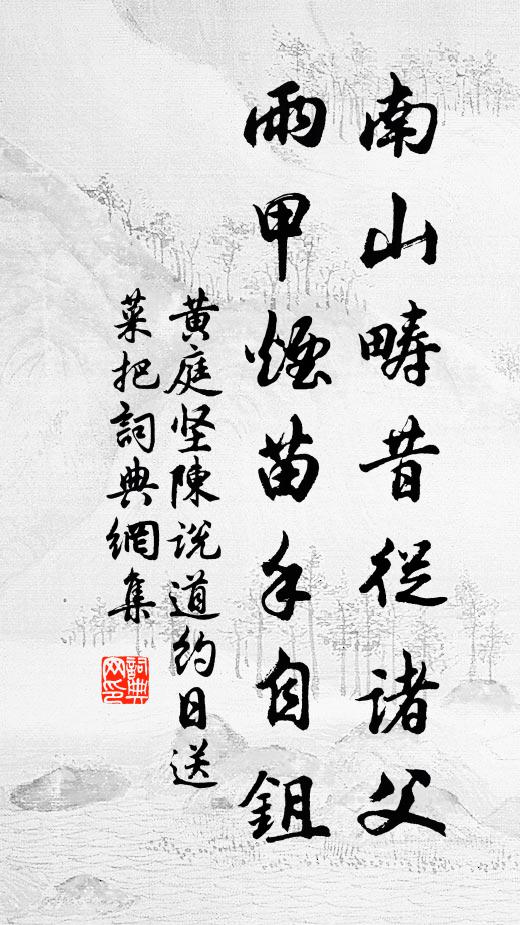 南山畴昔從諸父
雨甲煙苗手自鉏
黄庭坚陳说道約日送
菜把詞典網集
詞典网印